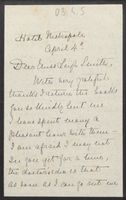 03.4.5
Hotel Metropole
April 4th
Dear Miss Leigh Smith,
With very grateful
thanks I return the books
you so kindly lent me
I have spent many a
pleasant hour with them
I am afraid I may not
see you yet for a time,
the doctor tells me that
as soon as I can go out we